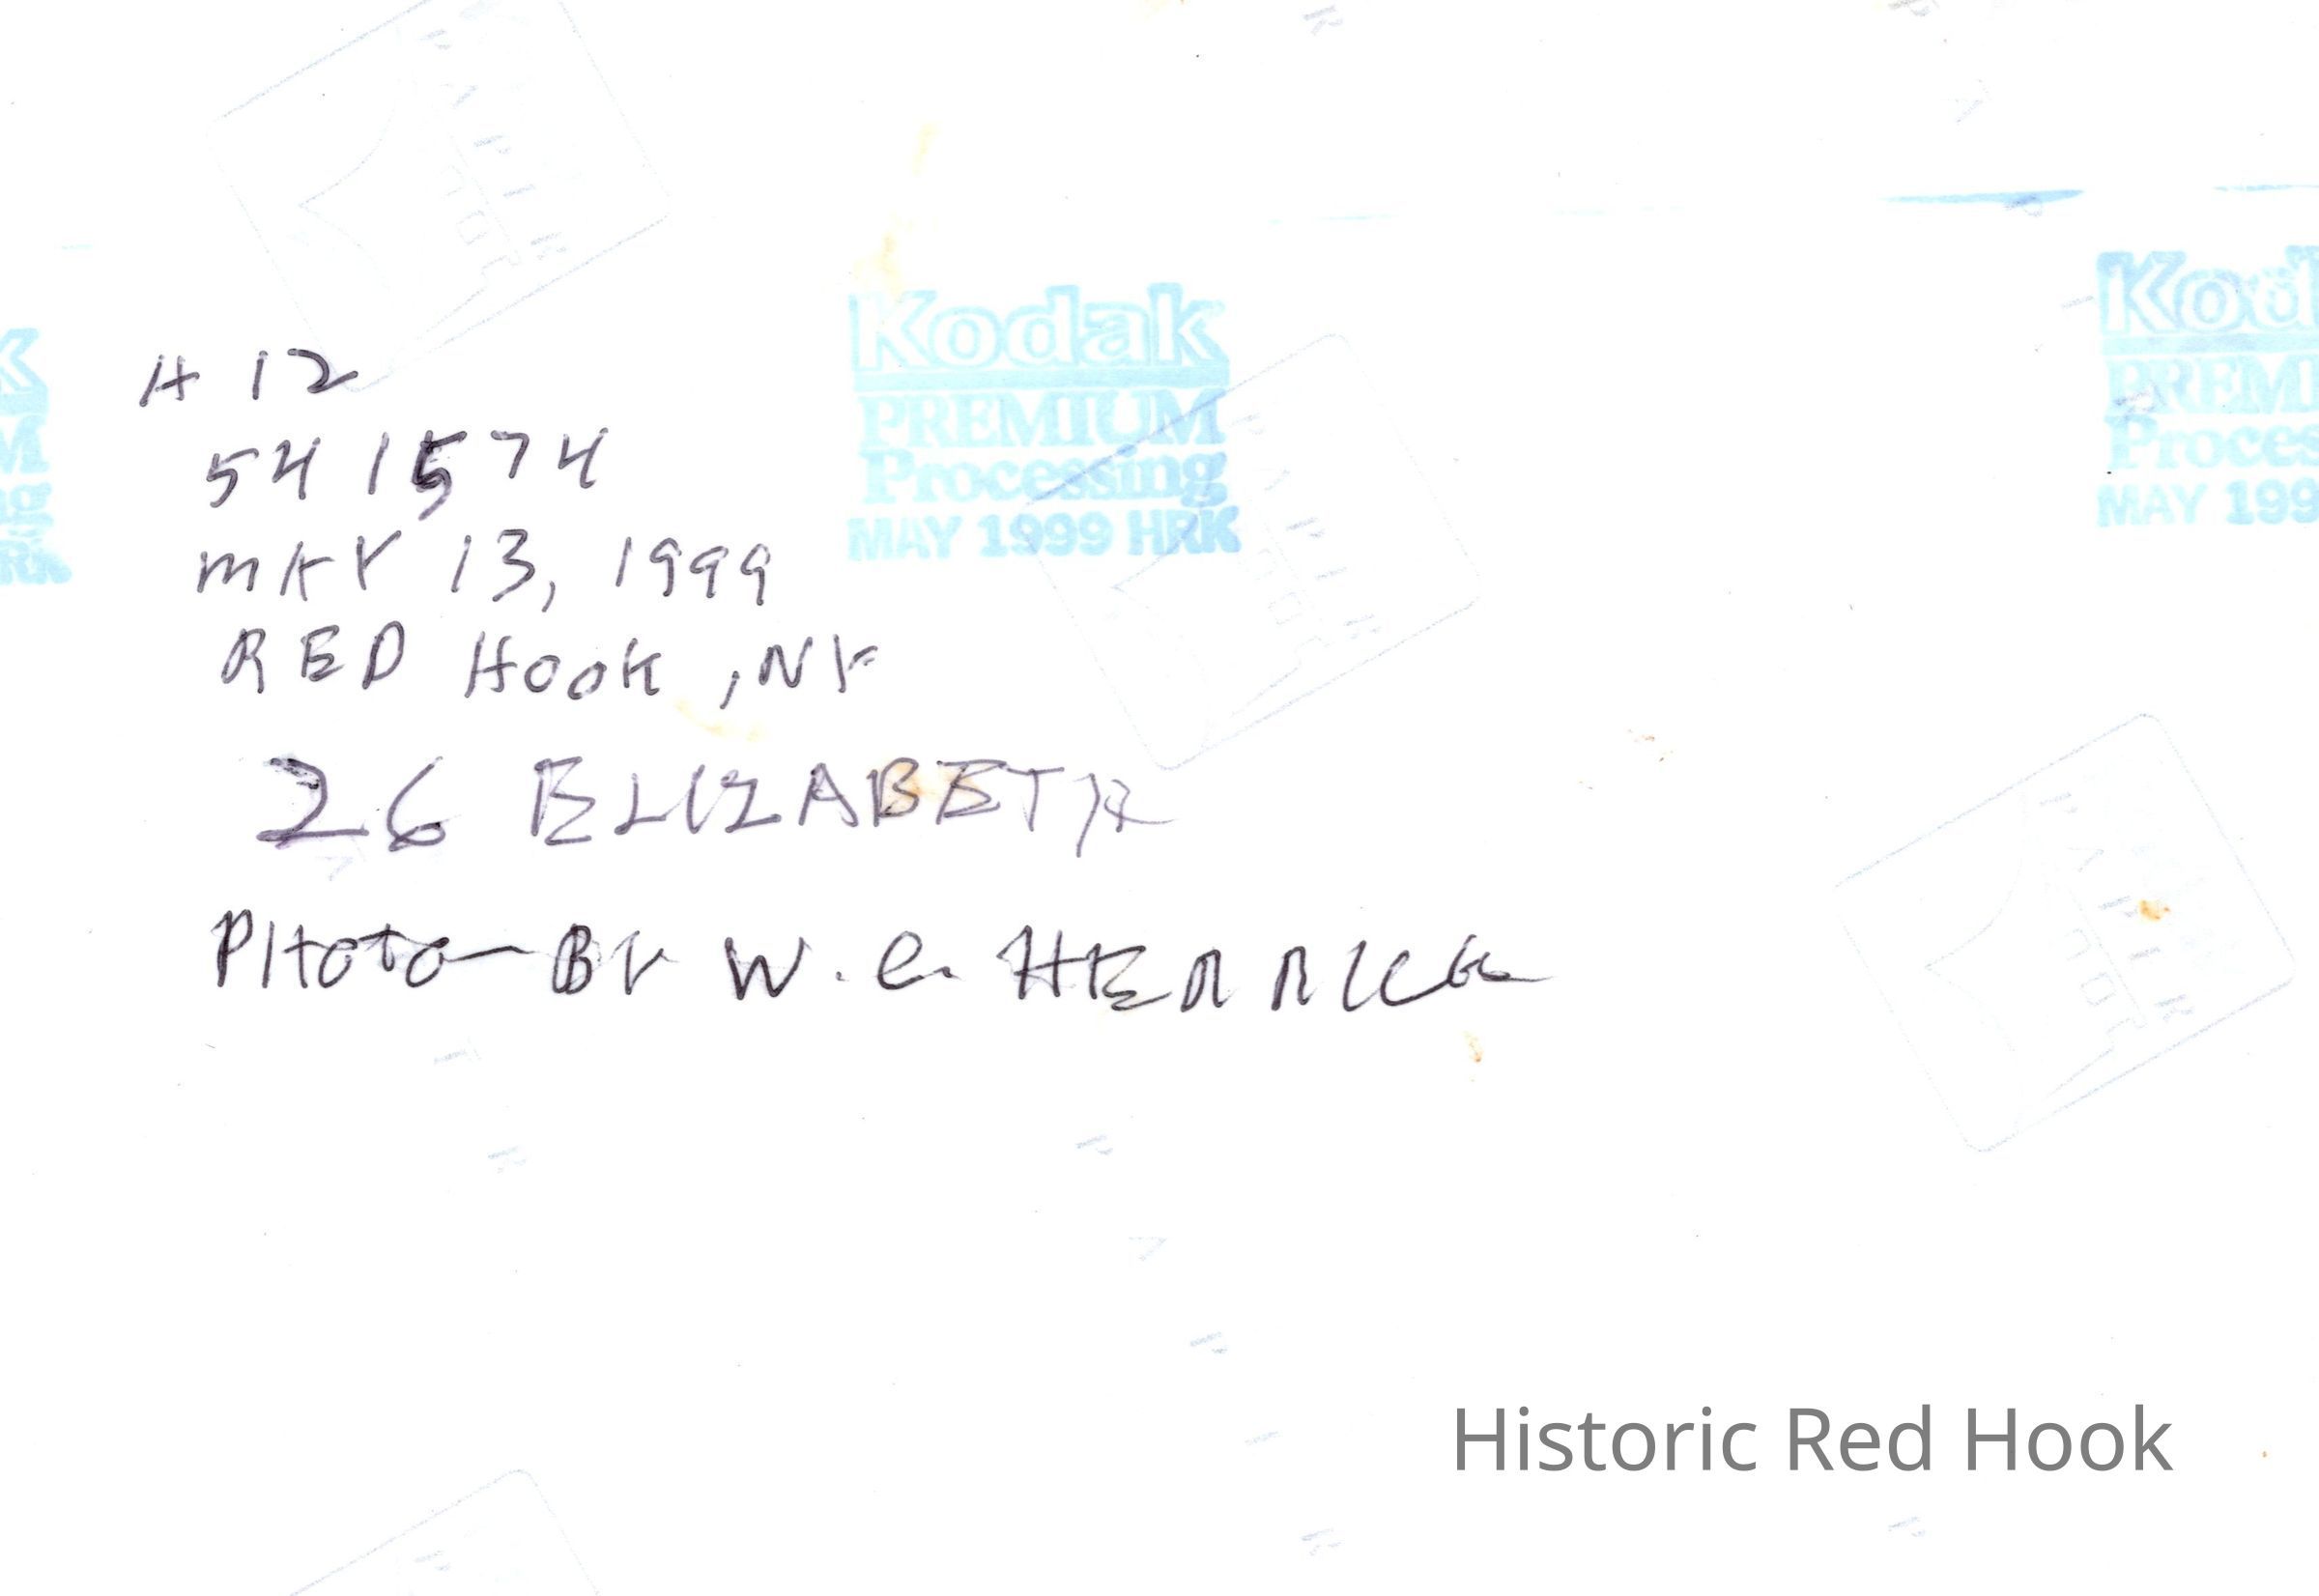 # 12
541574
MAY 13, 1999
RED HOOK, NY
26 ELIZABETH
PHOTO BY W. C. HERRICK
Kodak
PREMIUM
Processing
MAY 1999 HRK
Kod
PREMI
Proces
MAY 199
K
M
ng
RK
Historic Red Hook